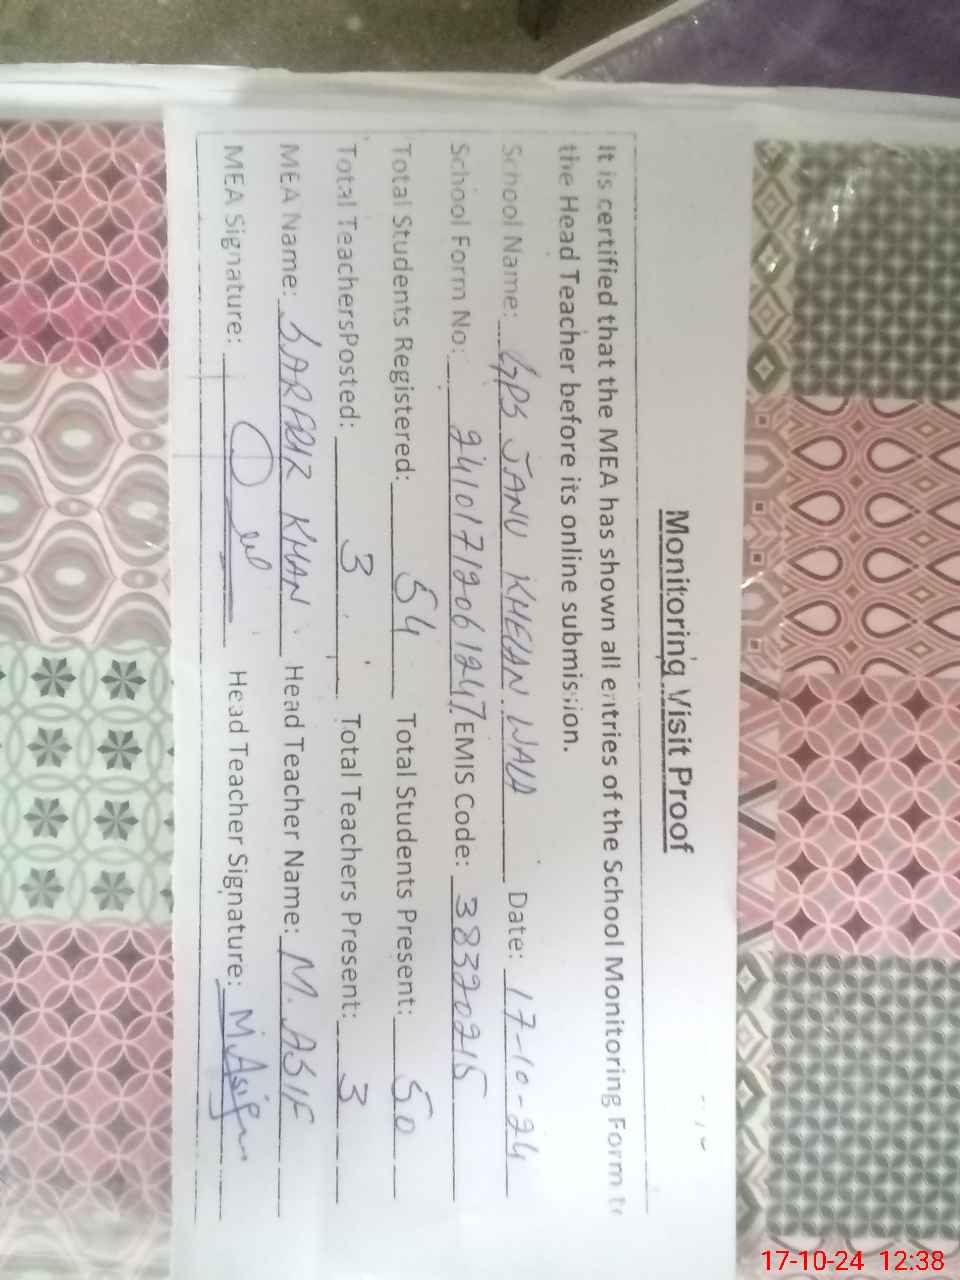 Monitoring Visit Proof
It is certified that the MEA has shown all entries of the School Monitoring Form to
the Head Teacher before its online submission.
School Name: GPS JANU KHELAN WALA Date: 17-10-24
School Form No: 24101712061247 EMIS Code: 38320215
Total Students Registered: 54 Total Students Present: 50
Total TeachersPosted: 3 Total Teachers Present: 3
MEA Name: SARFRAZ KHAN Head Teacher Name: M. ASIF
MEA Signature: Head Teacher Signature: M.Asif
17-10-24 12:38